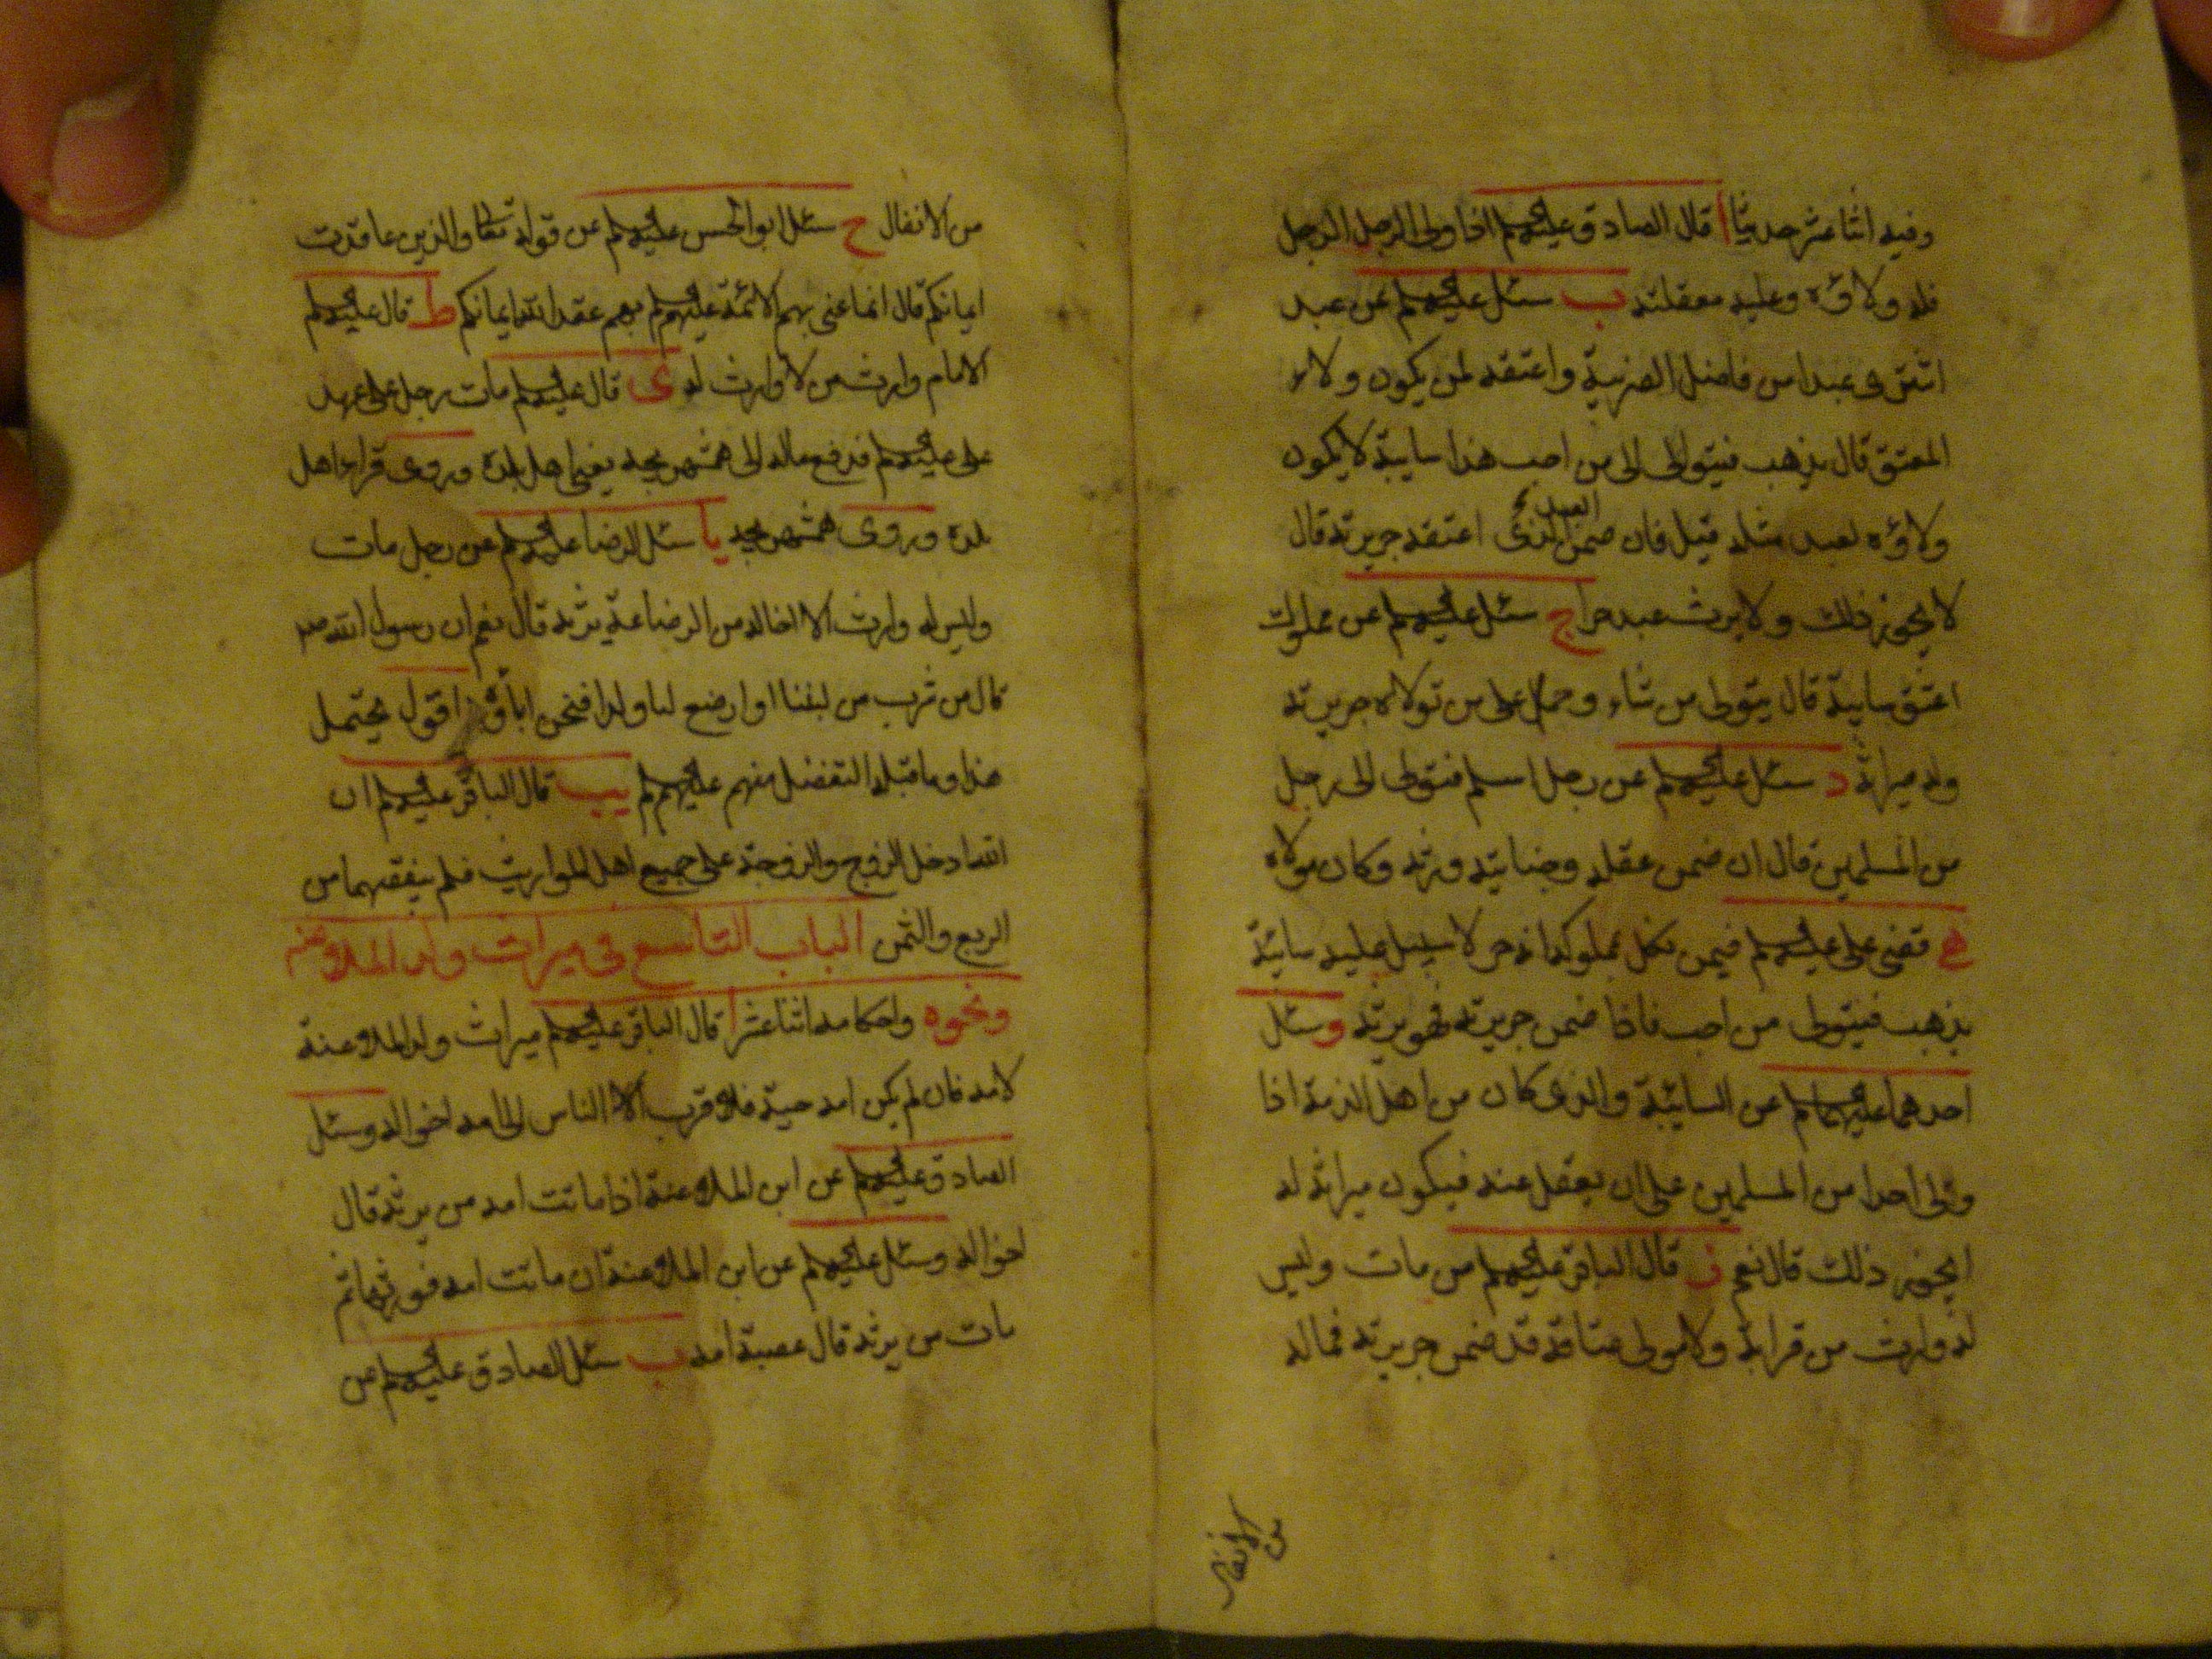 وفيه اثنا عشر حديثا ا قال الصادق عليه السلم اذا والى الرجل الرجل
فله ولاؤه وعليه معقلته ب سئل عليه السلم عن عبد
اشترى عبدا من فاضل الضريبة واعتقه لمن يكون ولاء
المعتق قال يذهب فيتوالى الى من احب هذا سايبة لا يكون
ولاؤه لعبد مثله قيل فان ضمن العبد الذى اعتقه جريرته قال
لا يجوز ذلك ولا يرث عبد حرا ج سئل عليه السلم عن مملوك
اعتق سايبة قال يتولى من شاء وحمل على من تولاه جريرته
وله ميراثه د سئل عليه السلم عن رجل اسلم فتولى الى رجل
من المسلمين قال ان ضمن عقله وجنايته ورثه وكان مولاه
ه قضى على عليه السلم فيمن نكل بمملوكه انه حر لا سبيل عليه سائبة
يذهب فيتولى من احب فاذا ضمن جريرته فهو يرثه و سئل
احدهما عليهما السلم عن السائبة والذى كان من اهل الذمة اذا
والى احدا من المسلمين على ان يعقل عنه فيكون ميراثه له
ايجوز ذلك قال نعم ز قال الباقر عليه السلم من مات وليس
له وارث من قرابة ولا مولى عتاقة قد ضمن جريرته فماله
من الانفال
من الانفال ح سئل ابو الحسن عليه السلم عن قوله تعالى والذين عاقدت
ايمانكم قال انما عنى بهم الائمة عليهم السلم بهم عقد الله ايمانكم ط قال عليه السلم
الامام وارث من لا وارث له ى قال عليه السلم مات رجل على عهد
على عليه السلم فدفع ماله الى همشهريجه يعنى اهل بلده وروى قراباهل
بلده وروى همشهريجه يا سئل الرضا عليه السلم عن رجل مات
وليس له وارث الا اخا له من الرضاعة يرثه قال نعم ان رسول الله ص
قال من شرب من لبننا او ارضع لنا ولدا فنحن اباؤه اقول يحتمل
هذا وما قبله التفضل منهم عليهم السلم يب قال الباقر عليه السلم ان
الله ادخل الزوج والزوجة على جميع اهل المواريث فلم ينقصهما من
الربع والثمن الباب التاسع فى ميراث ولد الملاعنه
ونحوه واحكامه اثنا عشر ا قال الباقر عليه السلم ميراث ولد الملاعنة
لامه فان لم يكن امه حية فلاقرب الناس الى امه اخواله وسئل
الصادق عليه السلم عن ابن الملاعنة اذا ماتت امه من يرثه قال
اخواله وسئل عليه السلم عن ابن الملاعنة ان ماتت امه فورثها ثم
مات من يرثه قال عصبة امه ب سئل الصادق عليه السلم عن